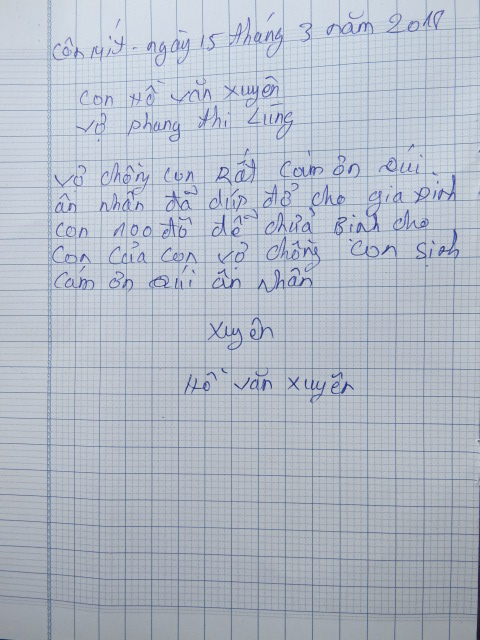 Côn Mít - ngày 15 tháng 3 năm 2018
con Hồ văn xuyên
vợ phang thị Lùng
vở chồng con Rất Cảm ơn Qúi
ân nhân đã dúp đở cho gia Đình
con 100 đô để chửa Bịnh cho
Con Của Con vở chồng con Sịnh
Cám ơn Qúi ân nhân
Xuyên
Hồ văn xuyên